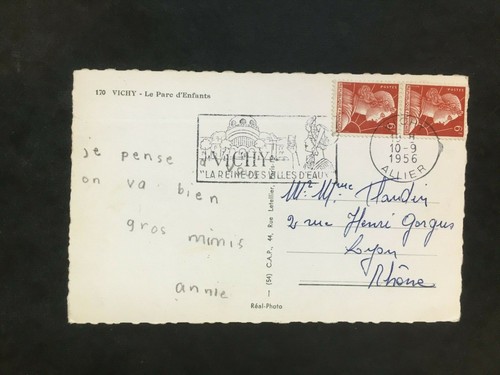 170 VICHY - Le Parc d'Enfants
POSTES
6F
POSTES
6F
VICHY
"LA REINE DES VILLES D'EAUX"
10-9
1956
ALLIER
je pense
on va bien
gros mimis
annie
Mr Mme
2 rue Henri Gorgus
Lyon
Rhône
(54) C.A.P., 44, Rue Letellier,
Réel-Photo